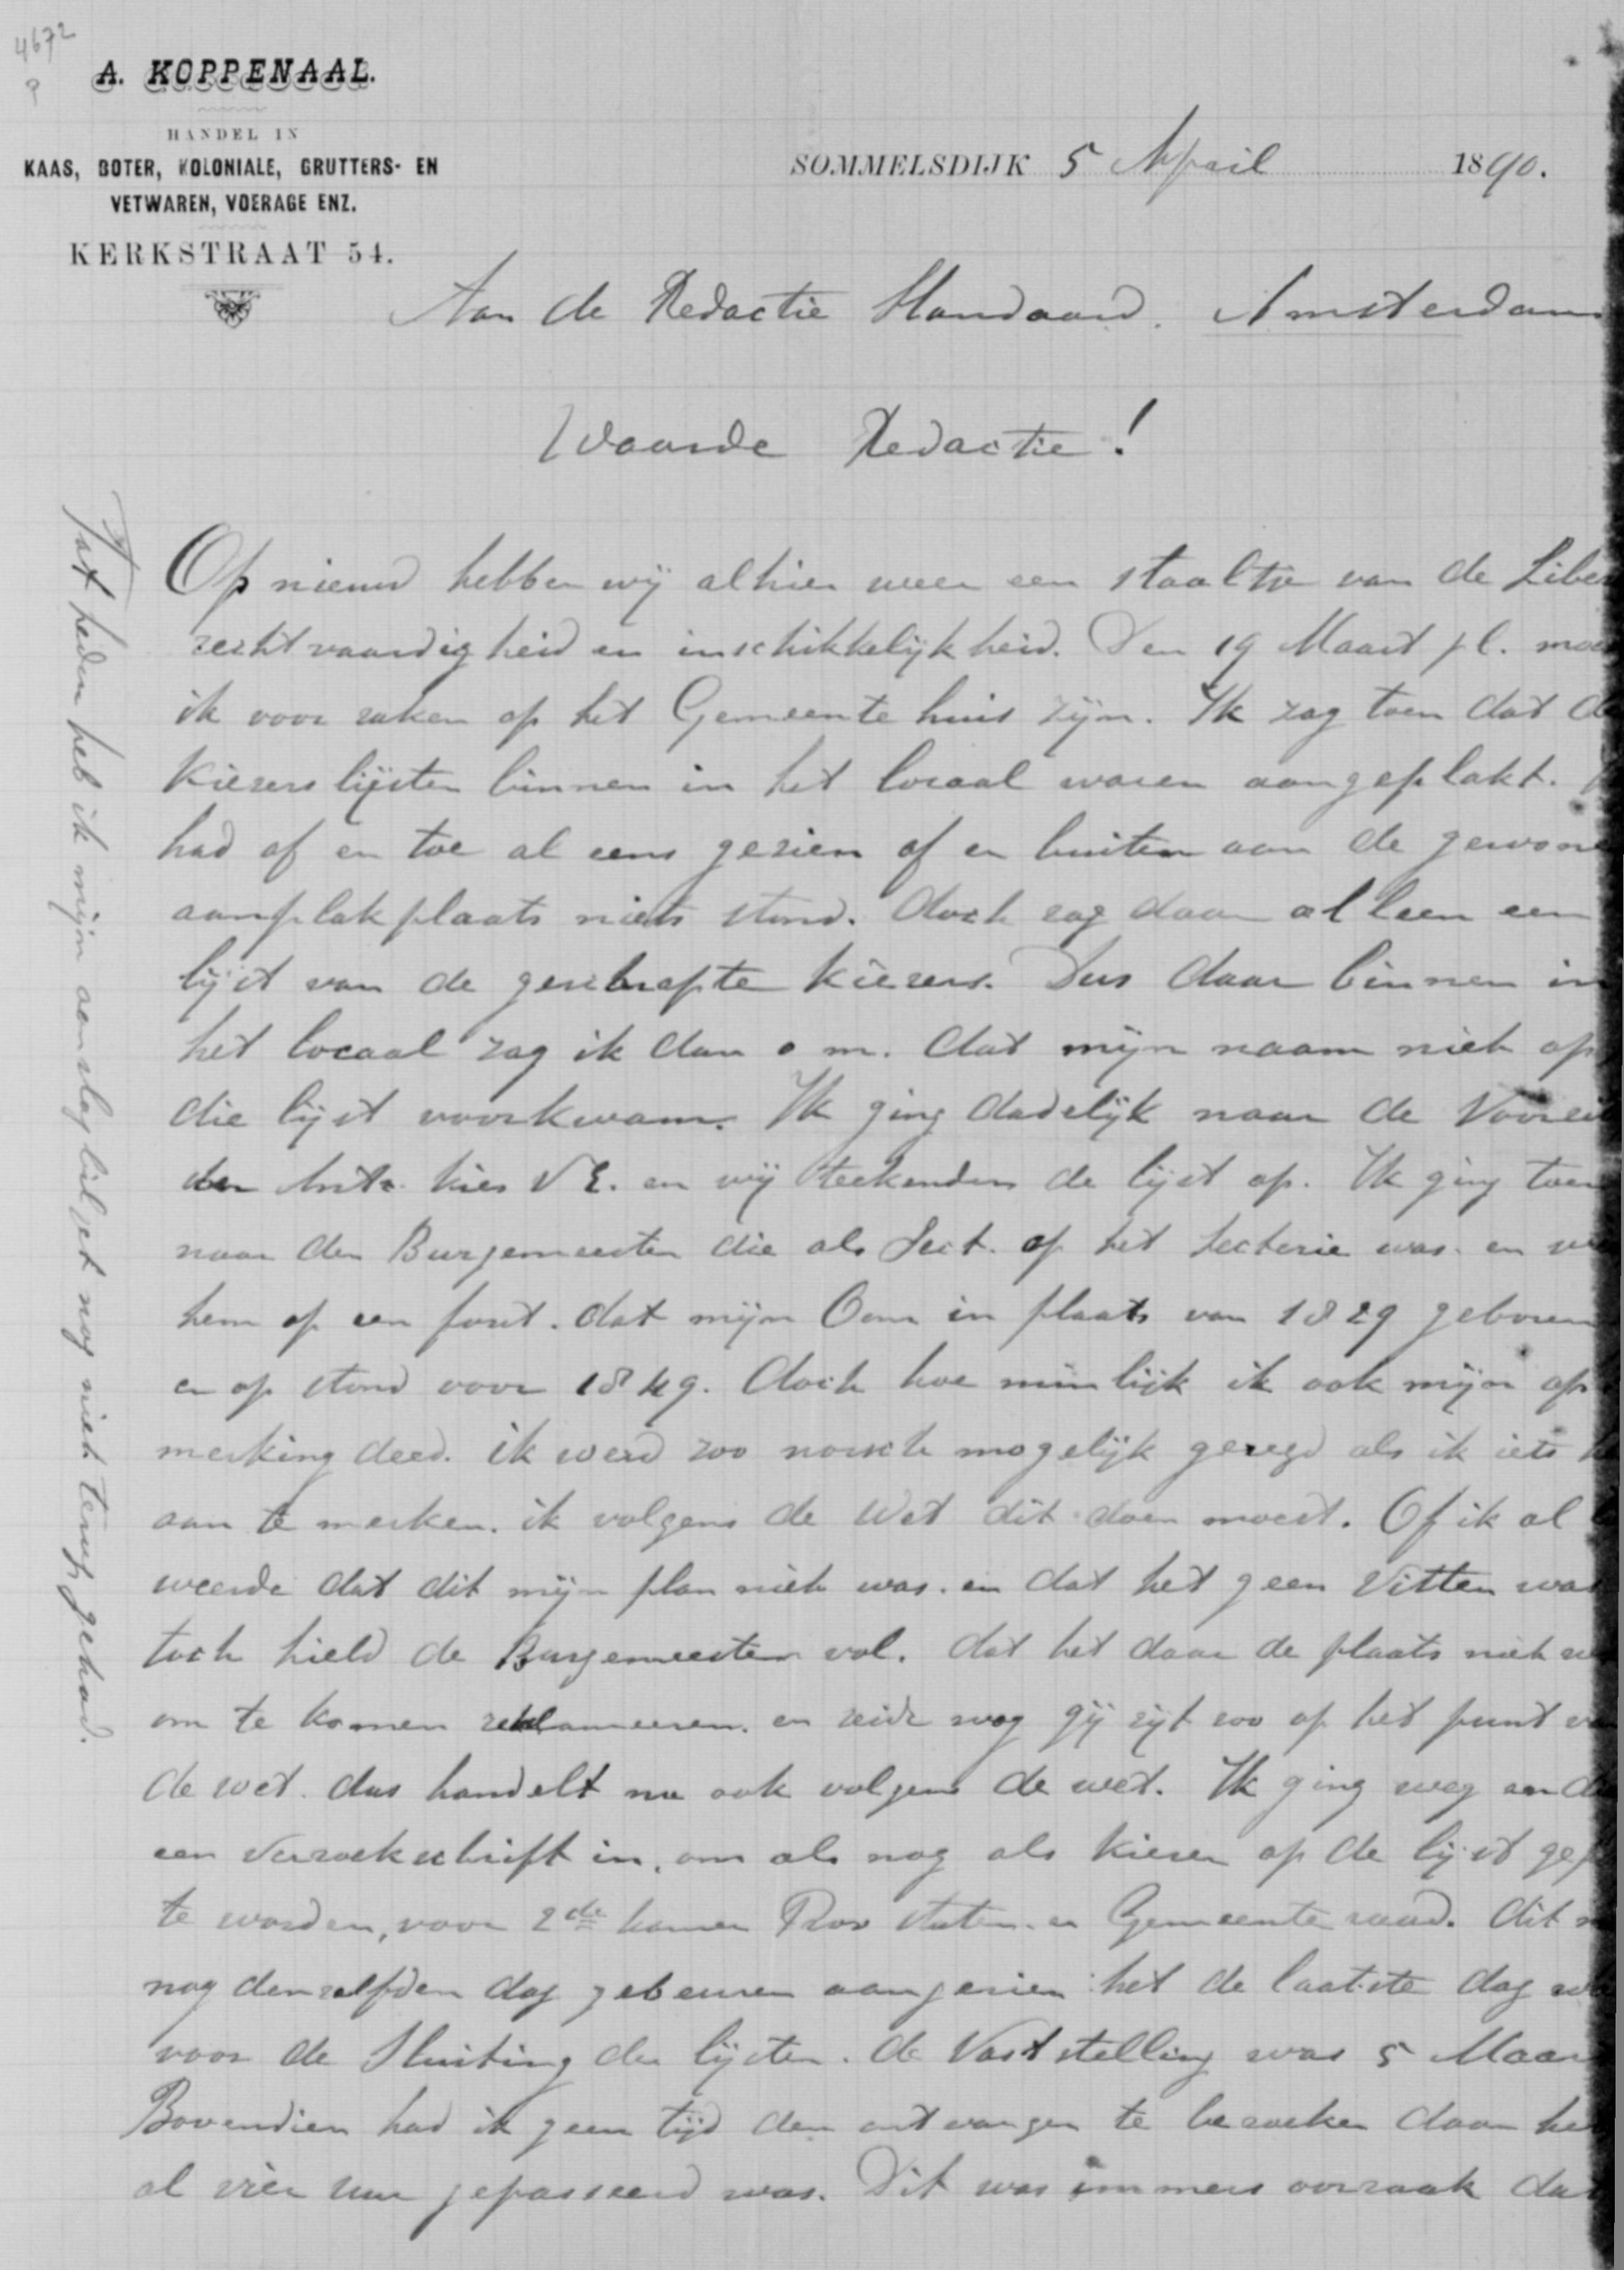 4672
A. KOPPENAAL.
HANDEL IN
KAAS, BOTER, KOLONIALE, GRUTTERS- EN
VETWAREN, VOERAGE ENZ.
KERKSTRAAT 54.
SOMMELSDIJK 5 April 1890.
Aan de Redactie Standaard. Amsterdam
Waarde Redactie!
Op nieuw hebben wij alhier weer een staaltje van de Libe
rechtvaardigheid en inschikkelijkheid. Den 19 Maart pl. moe
ik voor zaken op het Gemeente huis zijn. Ik zag toen dat d
kiezers lijsten binnen in het locaal waren aangeplakt.
had af en toe al eens gezien of er buiten aan de gewone
aanplakplaats niets stond. doch zag daar alleen een
lijst van de geschrapte kiezers. Dus daar binnen in
het locaal zag ik dan o m. dat mijn naam niet op
die lijst voorkwam. Ik ging dadelijk naar de Voorzi
der Antr. kies VE. en wij teekenden de lijst op. Ik ging toen
naar den Burgemeester die als Sect. op het Secterie was. en
hem op een fout. dat mijn Oom in plaats van 1829 geboren
er op stond voor 1849. doch hoe minlijk ik ook mijn op
merking deed. ik werd zoo norsch mogelijk gezegd als ik iets
aan te merken. ik volgens de Wet dit doen moest. Of ik al
weerde dat dit mijn plan niet was. en dat het geen Vitten was
toch hield de Burgemeester vol. dat het daar de plaats niet
om te komen reklameeren. en zeide nog gij zijt zoo op het punt
de wet. dus handelt nu ook volgens de wet. Ik ging weg en
een verzoekschrift in, om als nog als kiezer op de lijst ge
te worden, voor 2de kamer Prov staten. en Gemeente raad. dit
nog denzelfden dag gebeuren aangezien het de laatste dag
voor de Sluiting der lijsten. de Vaststelling was 5 Maar
Bovendien had ik geen tijd den ontvanger te bezoeken daar he
al vier uur gepasseerd was. Dit was immers oorzaak dat
Tot heden heb ik mijn aanslagbiljet nog niet terug gehad.